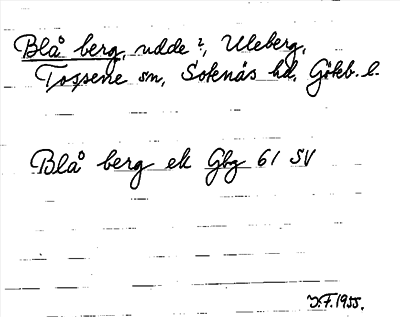 Blå berg, udde?, Uleberg,
Tossene sn, Sotenäs hd, Göteb. l.
Blå berg ek Gbg 61 SV
J.F. 1955.